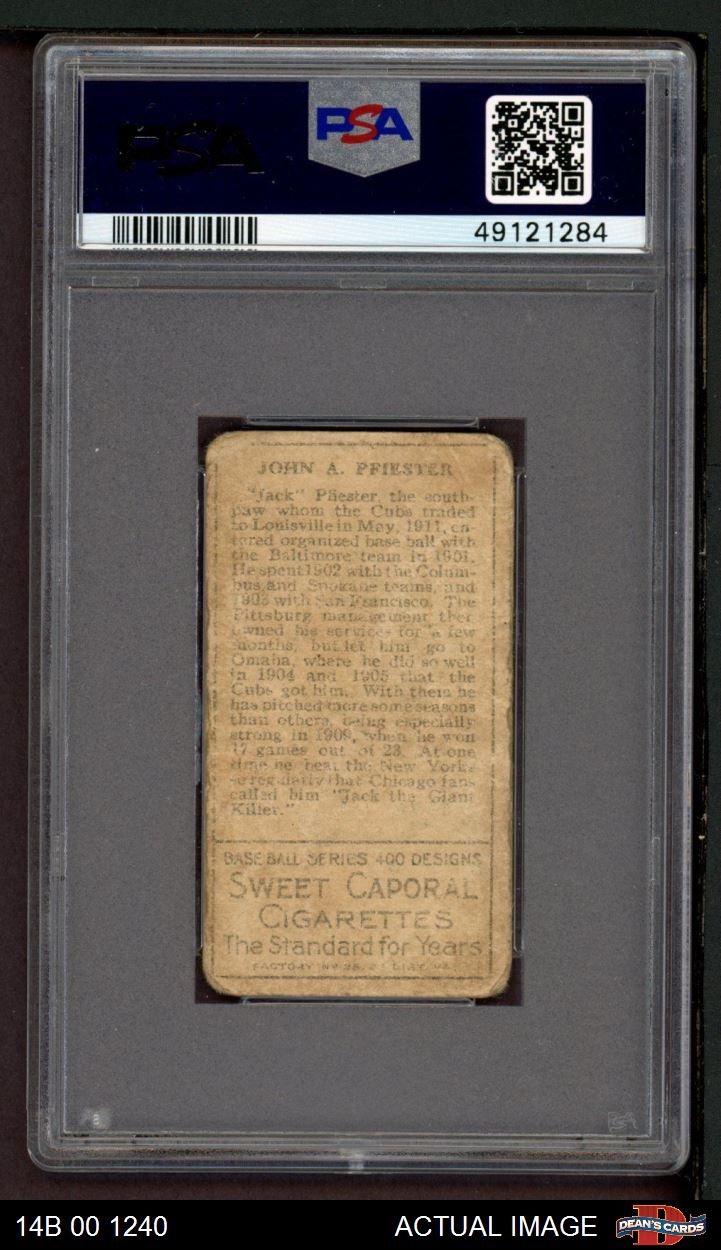 PSA
PSA
49121284
JOHN A. PFIESTER
"Jack" Pfiester, the south-
paw whom the Cubs traded
to Louisville in May, 1911, en-
tered organized base ball with
the Baltimore team in 1901.
He spent 1902 with the Colum-
bus and Spokane teams, and
1903 with San Francisco. The
Pittsburg management then
owned his services for a few
months, but let him go to
Omaha, where he did so well
in 1904 and 1905 that the
Cubs got him. With them he
has pitched more some seasons
than others, being especially
strong in 1909, when he won
17 games out of 23. At one
time he beat the New Yorks
so regularly that Chicago fans
called him "Jack the Giant
Killer."
BASE BALL SERIES 400 DESIGNS
SWEET CAPORAL
CIGARETTES
The Standard for Years
FACTORY No 25, 2
14B 00 1240
ACTUAL IMAGE
DEAN'S CARDS